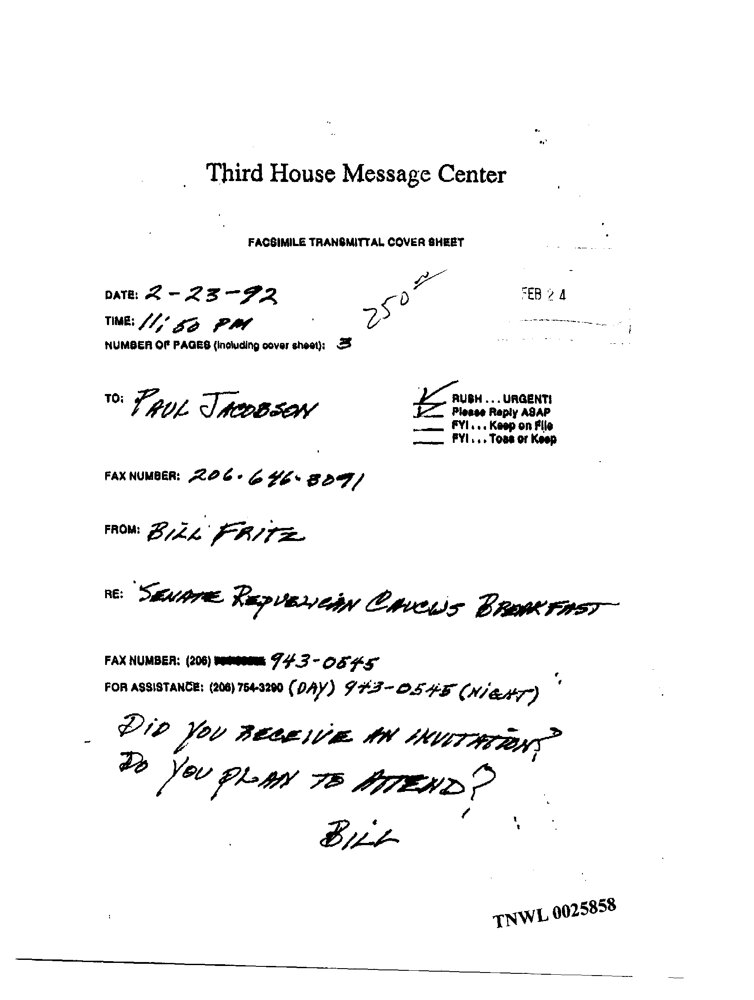 Third House Message Center
FACSIMILE TRANSMITTAL COVER SHEET
DATE: 2-23-92
250
FEB 24
TIME: 11:50 PM
NUMBER OF PAGES (including cover sheet): 3
TO: PAUL JACOBSON
RUSH . . . URGENT!
Please Reply ASAP
FYI . . . Keep on File
FYI . . . Toss or Keep
FAX NUMBER: 206-646-3091
FROM: BILL FRITZ
RE: SENATE REPUBLICAN CAUCUS BREAKFAST
FAX NUMBER: (206) 943-0545
FOR ASSISTANCE: (206) 754-3290 (DAY) 943-0545 (NIGHT)
DID YOU RECEIVE AN INVITATION?
DO YOU PLAN TO ATTEND?
BILL
TNWL 0025858